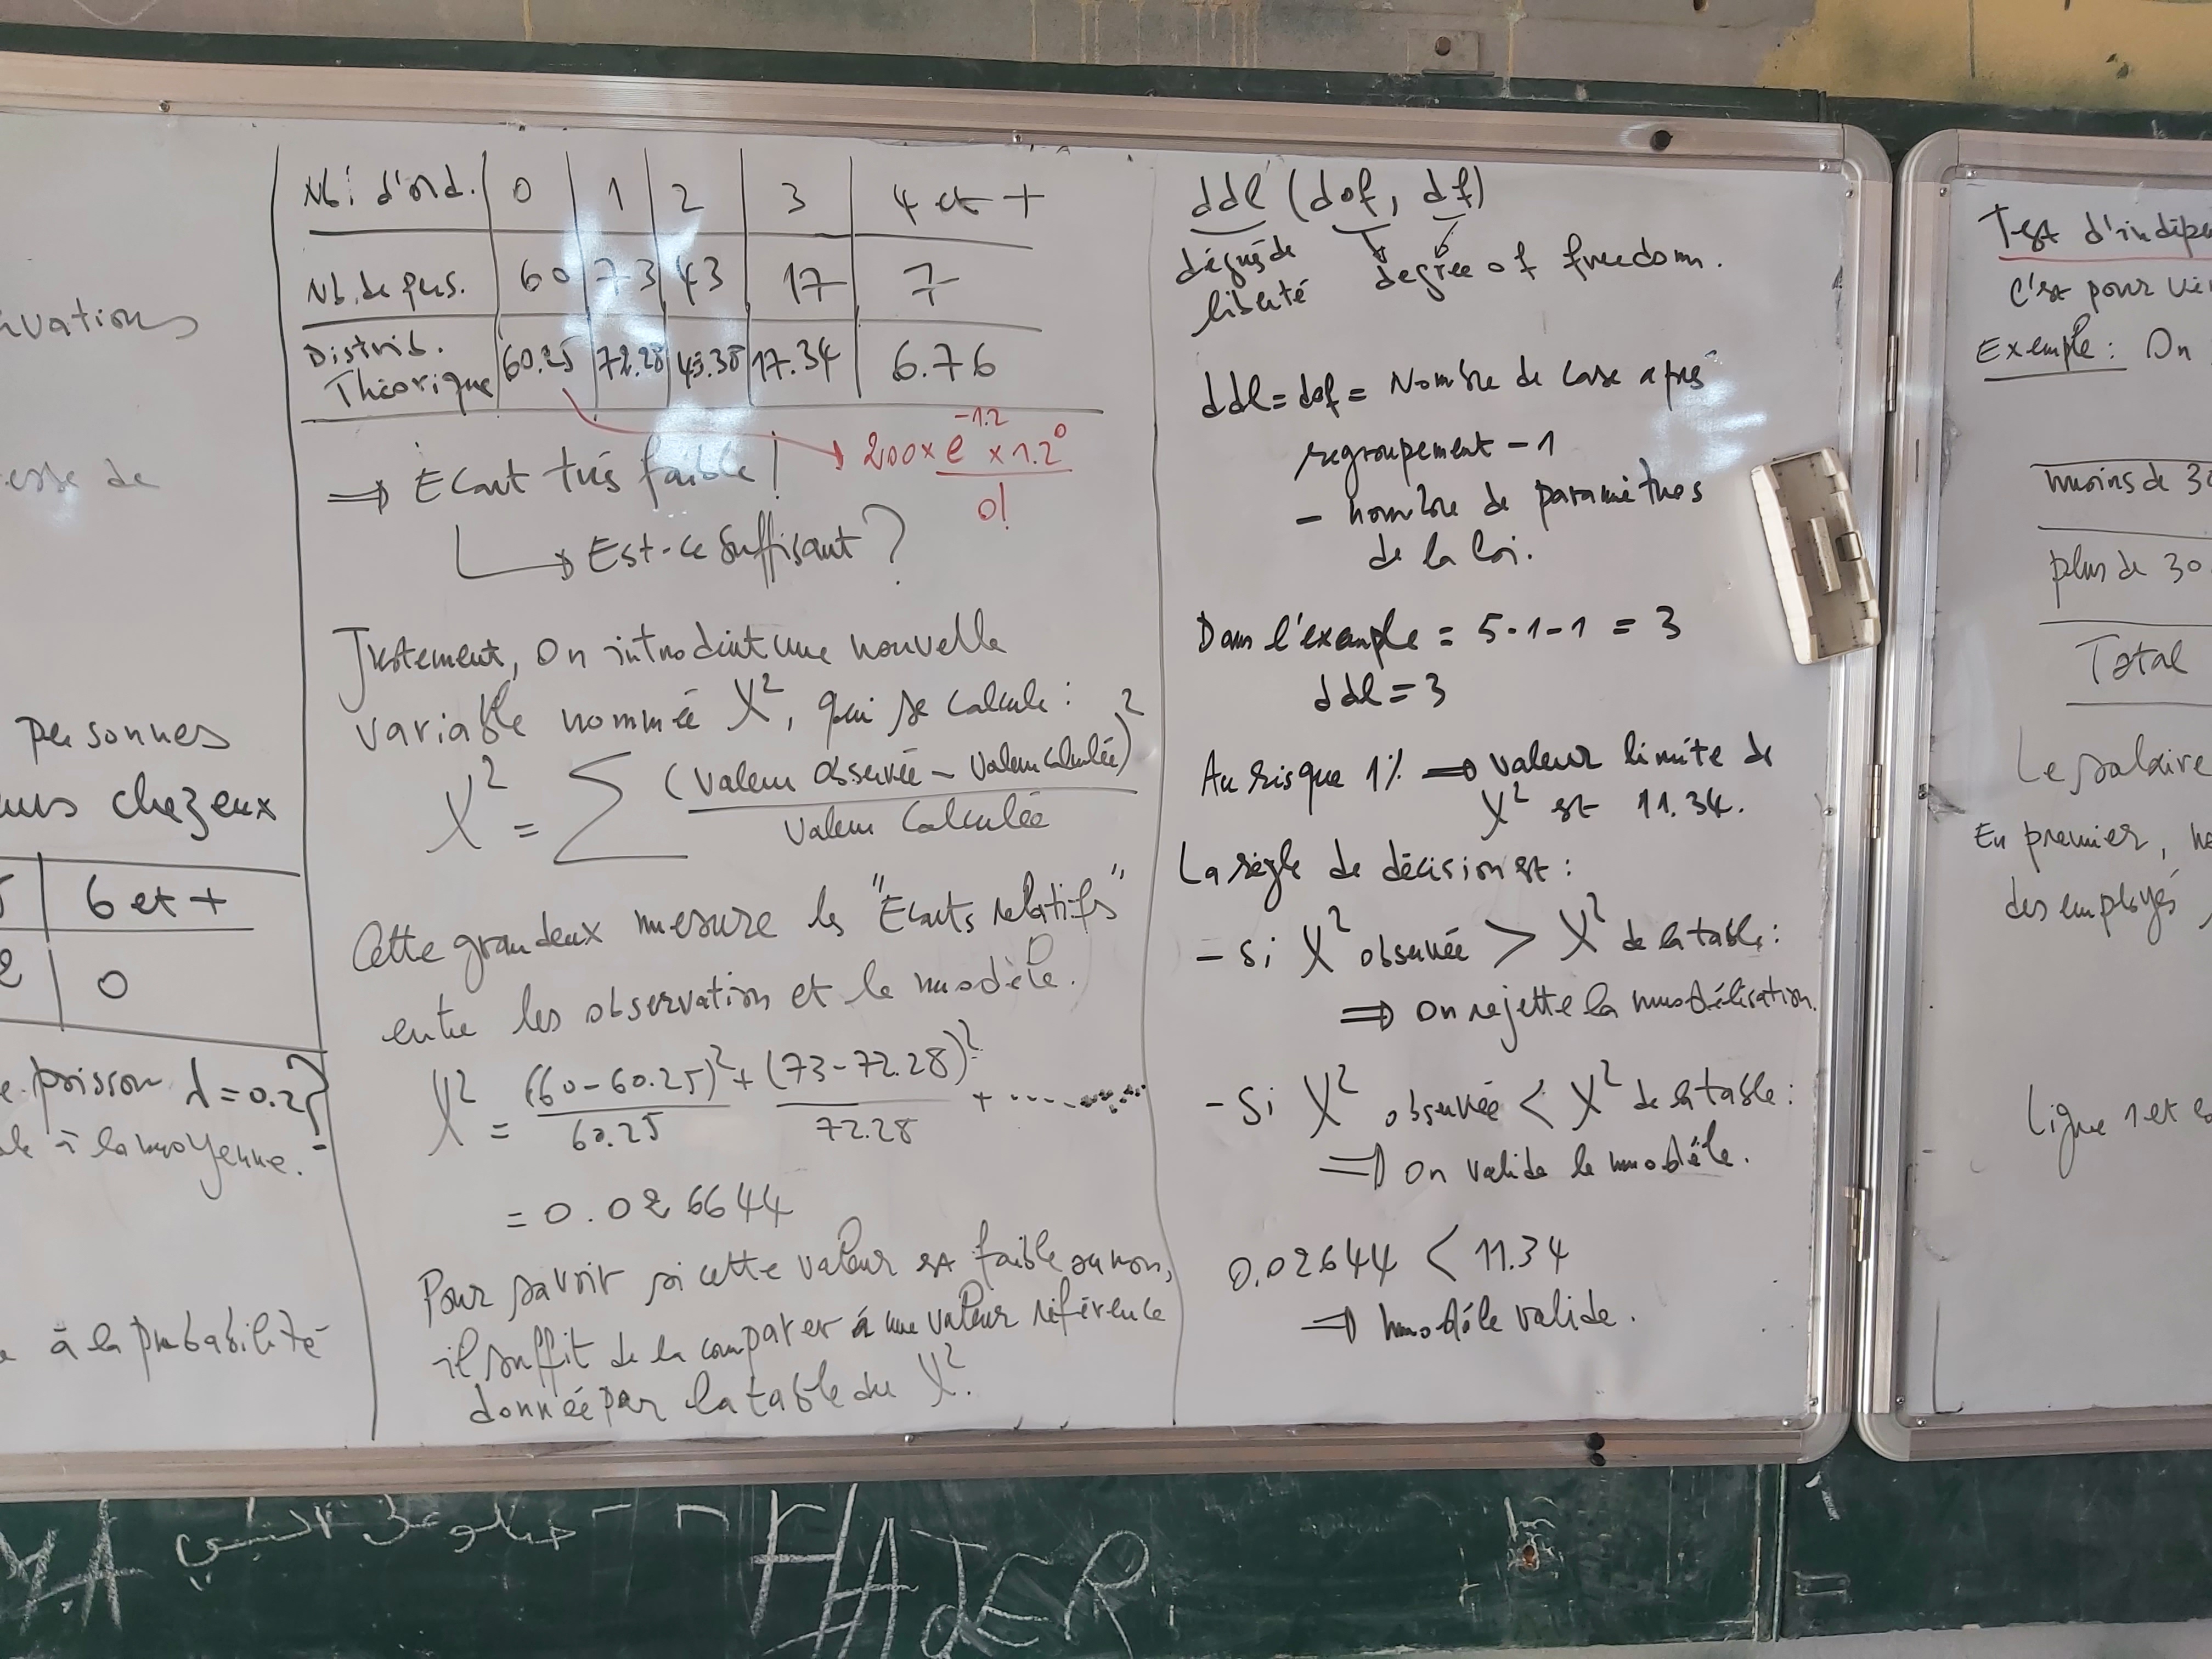 vations
esse de
personnes
chez eux
6 et +
0
poisson λ = 0.2
à la moyenne.
à la probabilité
Nb: d'ord. | 0 | 1 | 2 | 3 | 4 et +
Nb. de pers. | 60 | 73 | 43 | 17 | 7
Distrib. Théorique | 60.25 | 72.28 | 43.38 | 17.34 | 6.76
200 × e^-1.2 × 1.2^0 / 0!
⇒ Ecart très faible !
→ Est-ce suffisant ?
Justement, On introduit une nouvelle
variable nommée X², qui se calcule :
X² = Σ (valeur observée - valeur calculée)² / valeur calculée
Cette grandeux mesure les "Ecarts relatifs"
entre les observation et le modèle.
X² = (60-60.25)² / 60.25 + (73-72.28)² / 72.28 + .......
= 0.026644
Pour savoir si cette valeur est faible ou non,
il suffit de la comparer à une valeur référence
donnée par la table du X².
ddl (dof, df)
dégrés de liberté
degree of freedom.
ddl = dof = Nombre de case après
regroupement - 1
- nombre de paramètres
de la loi.
Dans l'exemple = 5-1-1 = 3
ddl = 3
Au risque 1% ⇒ valeur limite de
X² est 11.34.
La règle de décision est :
- Si X² observée > X² de la table :
⇒ on rejette la modélisation.
- Si X² observée < X² de la table :
⇒ on valide le modèle.
0.02644 < 11.34
⇒ modèle valide.
Test d'indépe
C'est pour vér
Exemple : On
moins de 30
plus de 30
Total
Le salaire
En premier,
des employés
ligne 1 et
HAJER